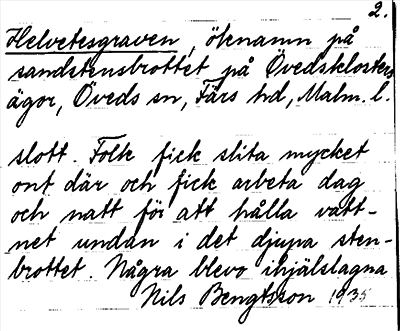 2.
Helvetesgraven, öknamn på
sandstensbrottet på Övedsklosters
ägor, Öveds sn, Färs hd, Malm. l.
slott. Folk fick slita mycket
ont där och fick arbeta dag
och natt för att hålla vatt-
net undan i det djupa sten-
brottet. Några blevo ihjälslagna
Nils Bengtsson 1935